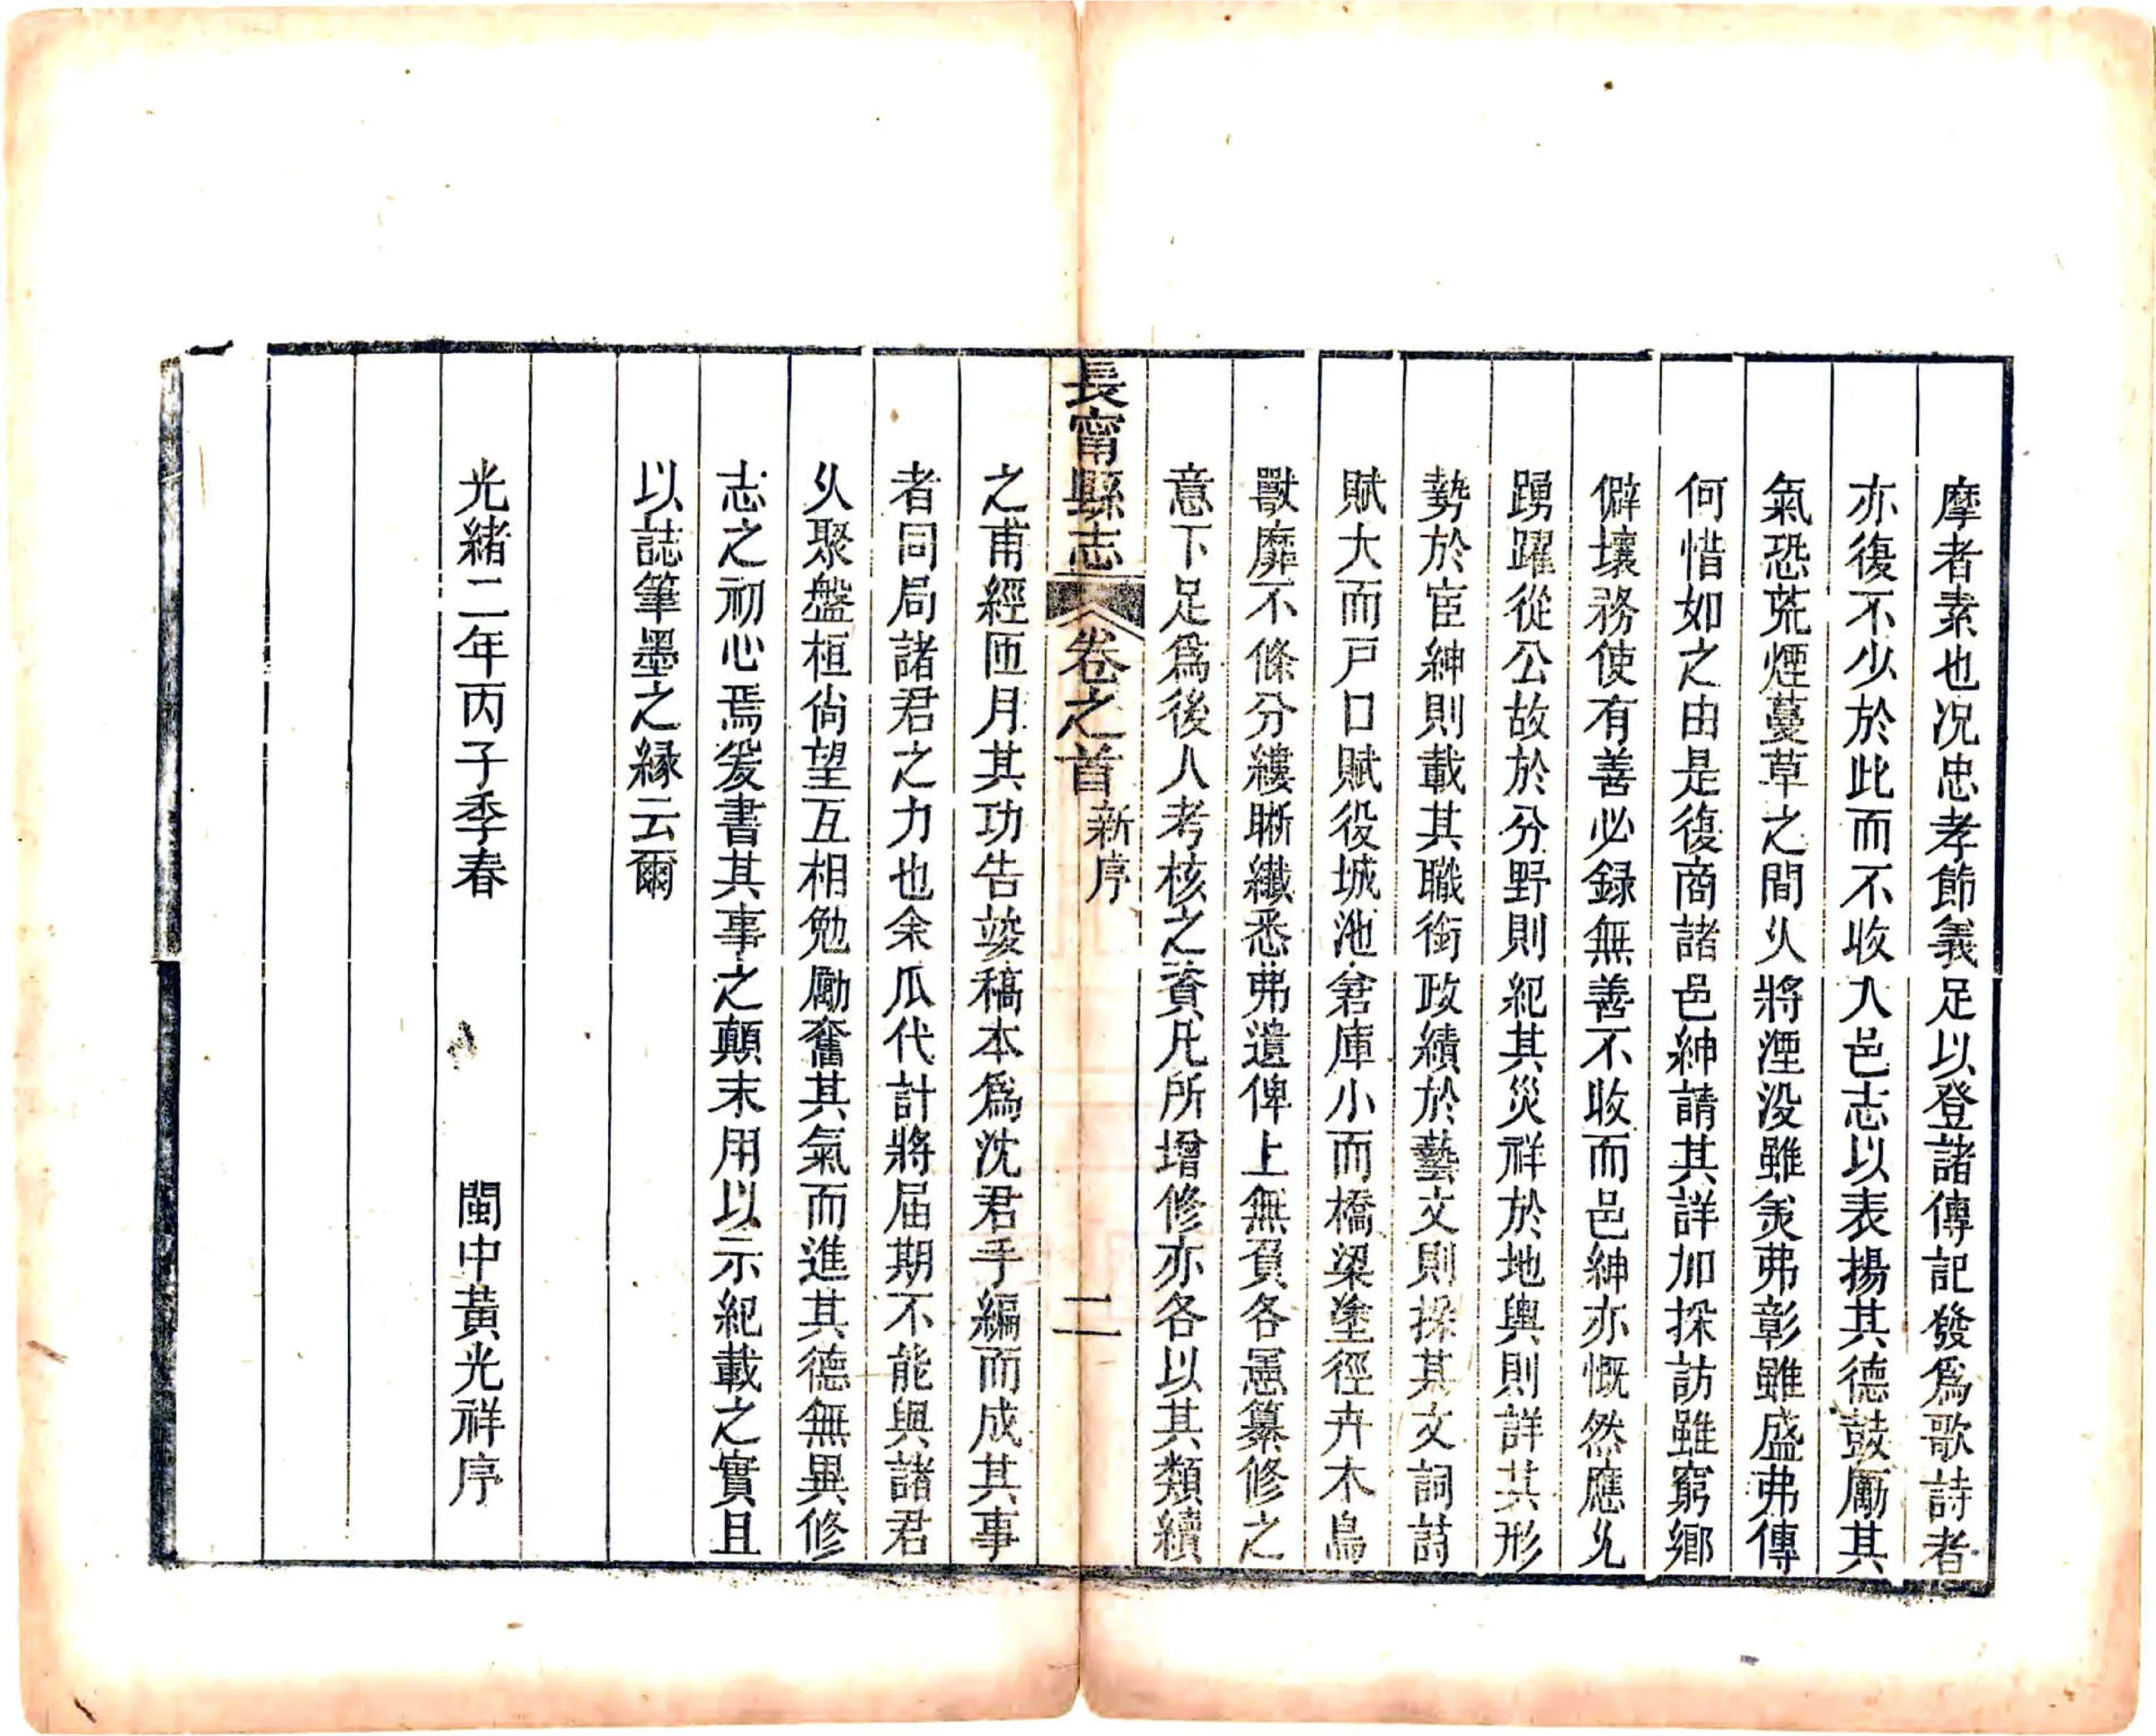 摩者素也况忠孝節義足以登諸傳記發爲歌詩者
亦復不少於此而不收入邑志以表揚其德鼓厲其
氣恐荒煙蔓草之間乆將湮没雖美弗彰雖盛弗傳
何惜如之由是復商諸邑紳請其詳加採訪雖窮鄉
僻壤務使有善必録無善不收而邑紳亦慨然應允
踴躍從公故於分野則紀其災祥於地輿則詳其形
勢於宦紳則載其職銜政績於藝文則採其文詞詩
賦大而戸口賦役城池倉庫小而橋梁塗徑卉木鳥
獸靡不條分縷晰纖悉弗遺俾上無負各憲纂修之
意下足爲後人考核之資凡所增修亦各以其類續
長甯縣志 卷之首 新序 二
之甫經匝月其功告竣稿本爲沈君手編而成其事
者同局諸君之力也余瓜代計將届期不能與諸君
乆聚盤桓尙望互相勉勵奮其氣而進其德無異修
志之初心焉爰書其事之顛末用以示紀載之實且
以誌筆墨之緣云爾
光緒二年丙子季春 閩中黃光祥序